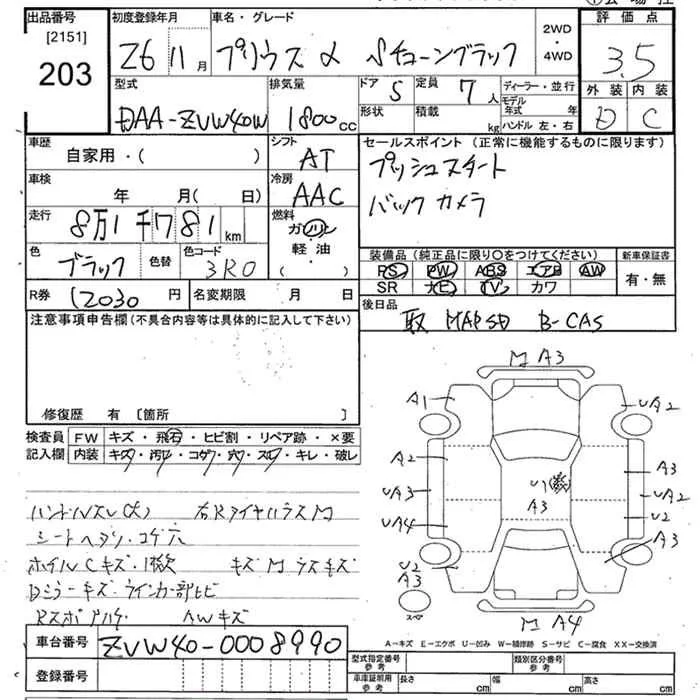 出品番号
[2151]
203
初度登録年月
26 11月
車名・グレード
プリウス α Sチューンブラック
2WD
・
4WD
評価点
3.5
外装 内装
D C
型式
DAA-ZVW40W
排気量
1800cc
ドア 5
定員 7人
形状
積載 kg
ディーラー・並行
モデル年式 年
ハンドル 左・右
車歴
自家用・( )
シフト
AT
車検
年 月(日)
冷房
AAC
走行
8万1千781km
燃料
ガソリン
軽・油
・( )
色
ブラック
色替
色コード
3R0
R券 12030円
名変期限 月 日
セールスポイント (正常に機能するものに限ります)
プッシュスタート
バックカメラ
装備品 (純正品に限り〇をつけてください)
PS PW ABS エアB AW
SR ナビ TV カワ
新車保証書
有・無
後日品
取 MAPSD B-CAS
注意事項申告欄(不具合内容等は具体的に記入して下さい)
修復歴 有〔箇所 〕
検査員記入欄
FW キズ・飛石・ヒビ割・リペア跡・×要
内装 キズ・汚レ・コゲ・穴・スレ・キレ・破レ
シートヘタリ・コゲ穴
キズM
AWキズ
M A3
A1
UA2
A2
A3
UA3
UA2
U1
A3
UA4
U2
A3
U2
A3
スペア
M A4
A-キズ E-エクボ U-凹み W-補修跡 S-サビ C-腐食 XX-交換済
車台番号 ZVW40-0008990
登録番号
型式指定番号 参考
類別区分番号 参考
車庫証明用 参考
長さ cm 幅 cm 高さ cm